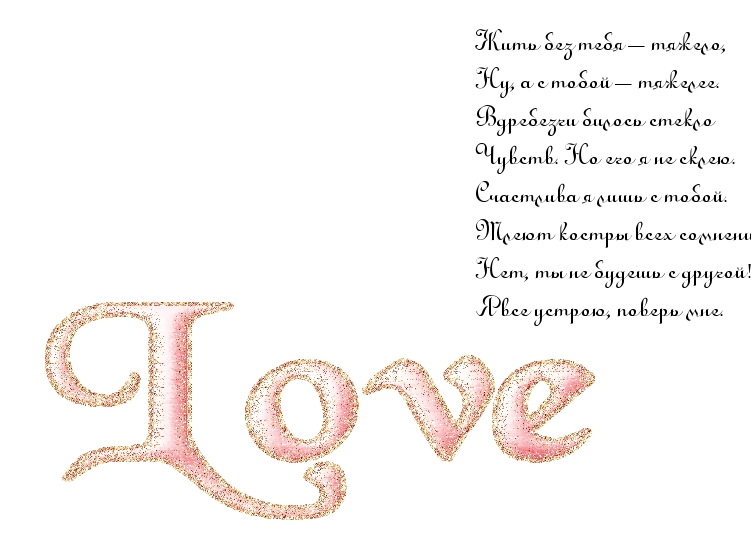 Жить без тебя — тяжело,
Ну, а с тобой — тяжелее.
Вдребезги билось стекло
Чувств. Но его я не склею.
Счастлива я лишь с тобой.
Тлеют костры всех
Нет, ты не будешь с другой!
Я все устрою, поверь мне.
Love